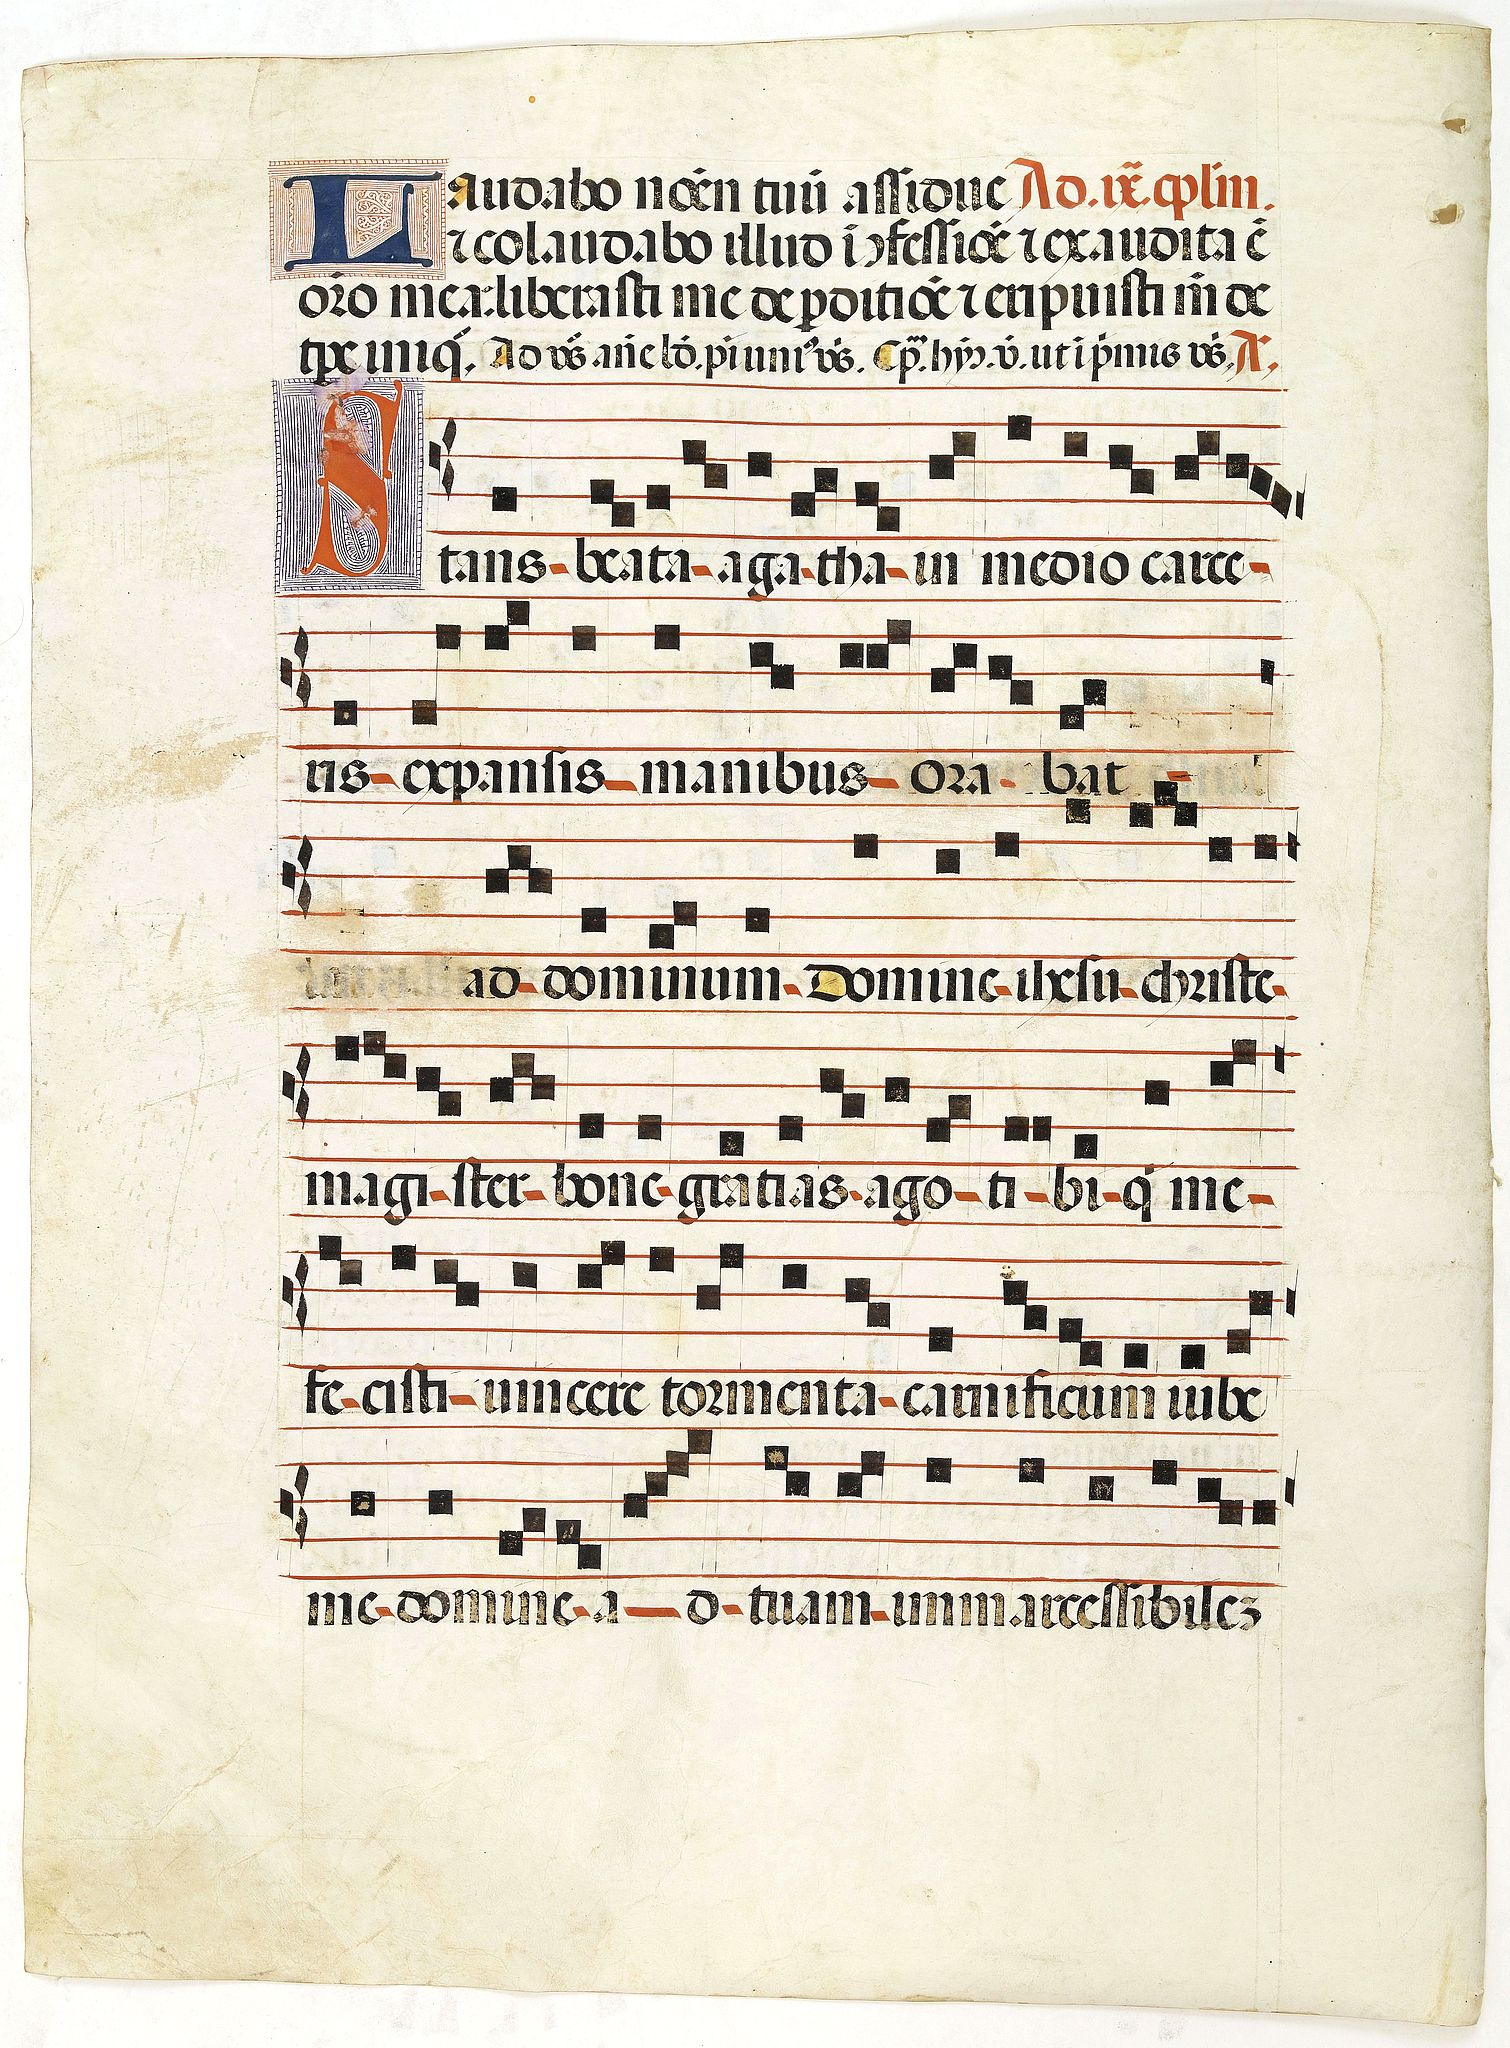 Laudabo nōen tuū assidue Ad. ix. cplm.
⁊ colaudabo illud ī ꝯfessiōe ⁊ exaudita ē
orō mea: liberasti me de ꝑditiōe ⁊ eripuisti m̄ de
tꝑe iniq̄. Ad vs̄ añe lō. pī uniꝰ vs̄. Cp̄. hyꝫ. v̄. ut ī p̄mis vs̄. A.
Stans beata agatha in medio carce
ris expansis manibus ora bat
ad dominum Domine ihesu christe
magister bone gratias ago tibi q̄ me
fecisti uincere tormenta carnificum iube
me domine ad tuam inmarcessibileꝫ